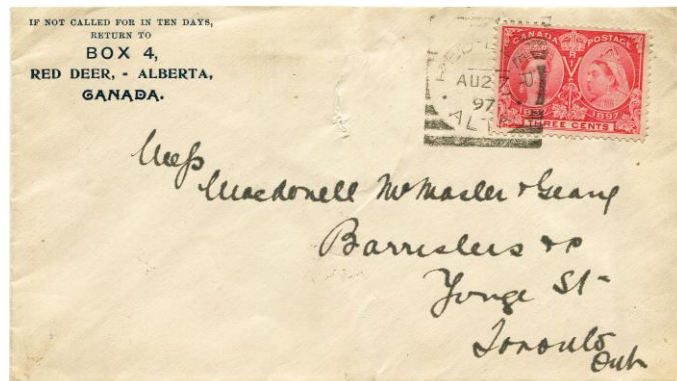 IF NOT CALLED FOR IN TEN DAYS,
RETURN TO
BOX 4,
RED DEER, - ALBERTA,
CANADA.
RED DEER
AU 27
97
ALTA
CANADA POSTAGE
1837 1897
THREE CENTS
Mess
Macdonell McMaster & Geary
Barristers &c
Yonge St-
Toronto
Ont